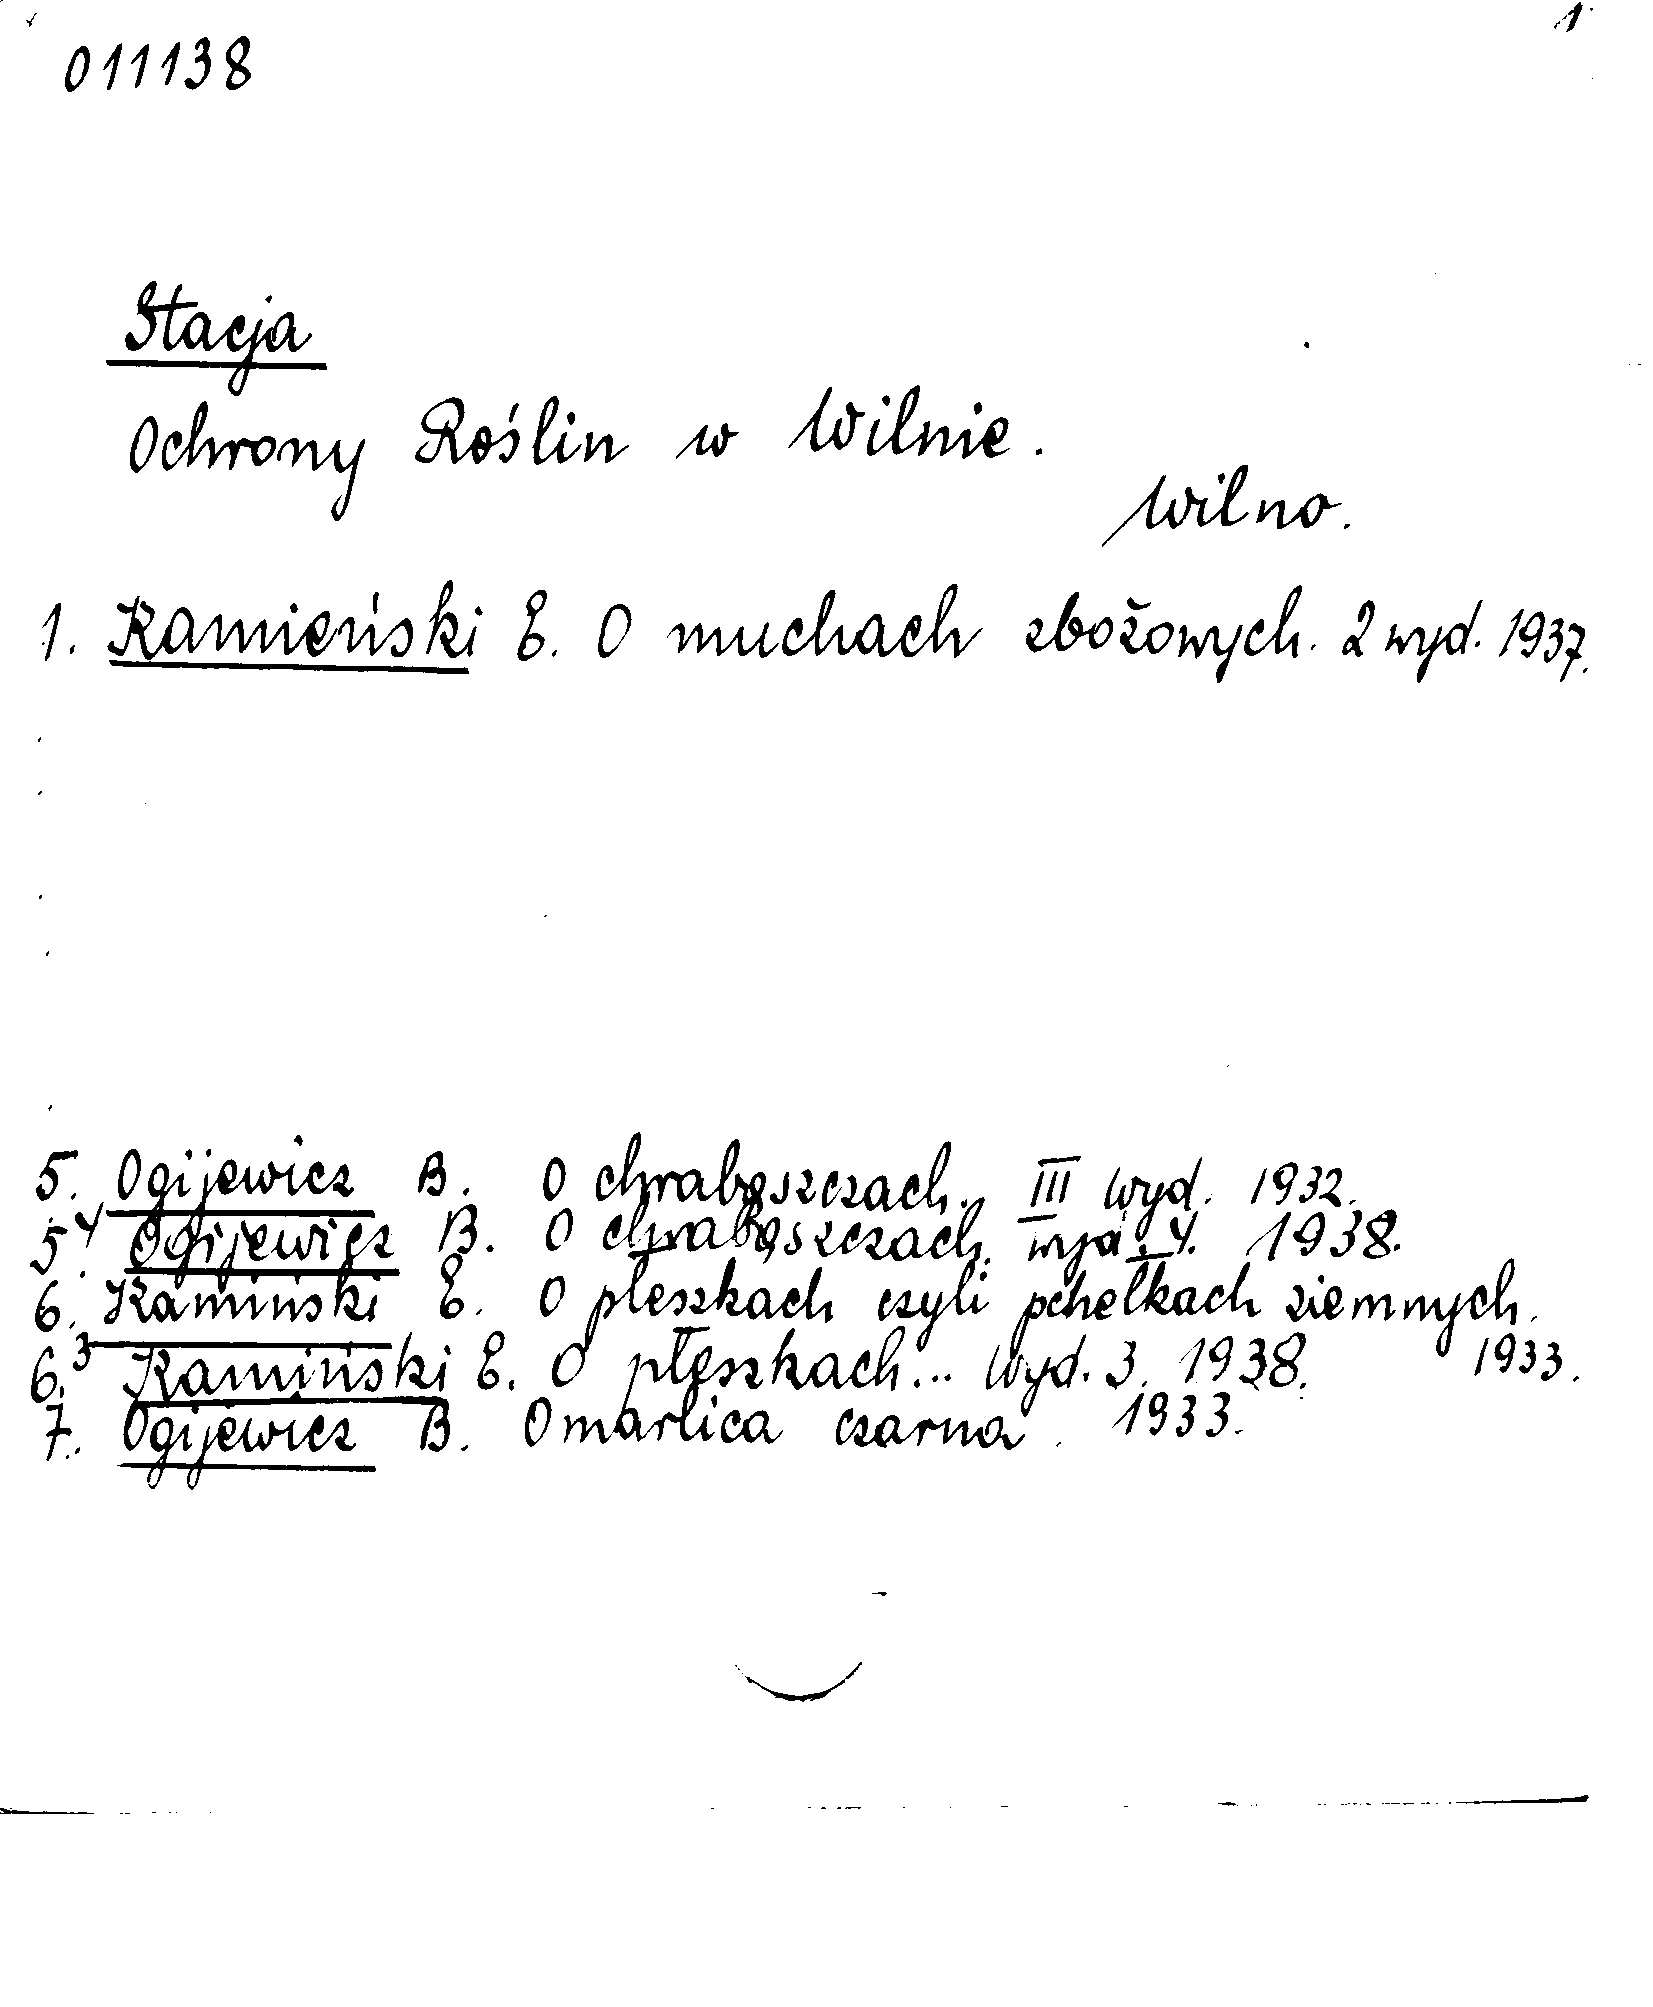 1
011138
Stacja
Ochrony Roślin w Wilnie.
Wilno.
1. Kamieński E. O muchach zbożowych. 2 wyd. 1937.
5. Ogijewicz B. O chrabąszczach. III wyd. 1932.
5.4 Ogijewicz B. O chrabąszczach. wyd. 4. 1938.
6. Kamiński E. O płeszkach czyli pchełkach ziemnych.
1933.
6.3 Kamiński E. O płeszkach... Wyd. 3. 1938.
7. Ogijewicz B. Omarlica czarna. 1933.